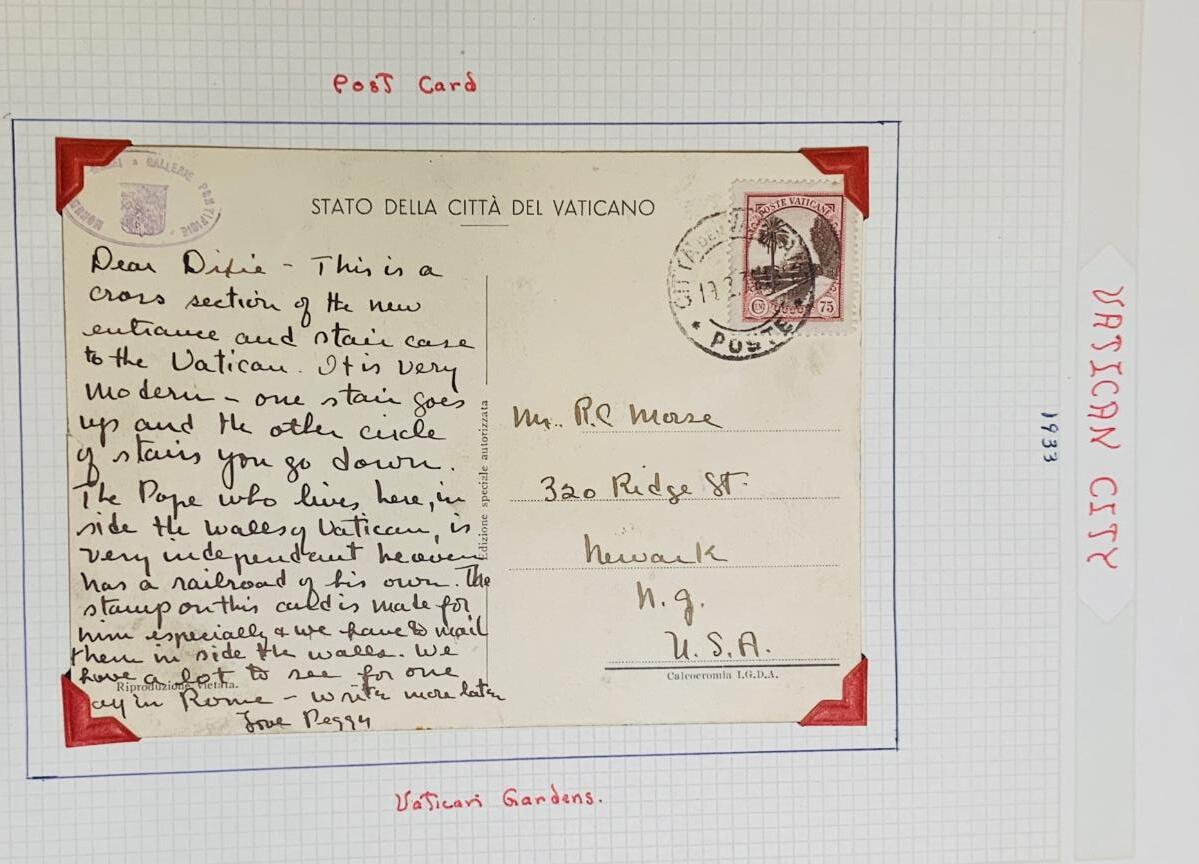 Post Card
GALLERIE PONTIFICIE
STATO DELLA CITTÀ DEL VATICANO
POSTE VATICANE
75
CITTÀ DEL
POSTE
Dear Dixie - This is a
cross section of the new
entrance and stair case
to the Vatican. It is very
modern - one stair goes
up and the other circle
of stairs you go down.
The Pope who lives here, in
side the walls of Vatican, is
very independant
has a railroad of his own. The
stamp on this card is made for
him especially & we have to mail
them in side the walls. We
have a lot to see for one
ay in Rome - write more later
Love Peggy
Riproduzione vietata.
Edizione speciale autorizzata
Mr. R.C Morse
320 Ridge St.
Newark
N.J.
U.S.A.
Calcocromia I.G.D.A.
Vatican Gardens.
1933
VATICAN CITY